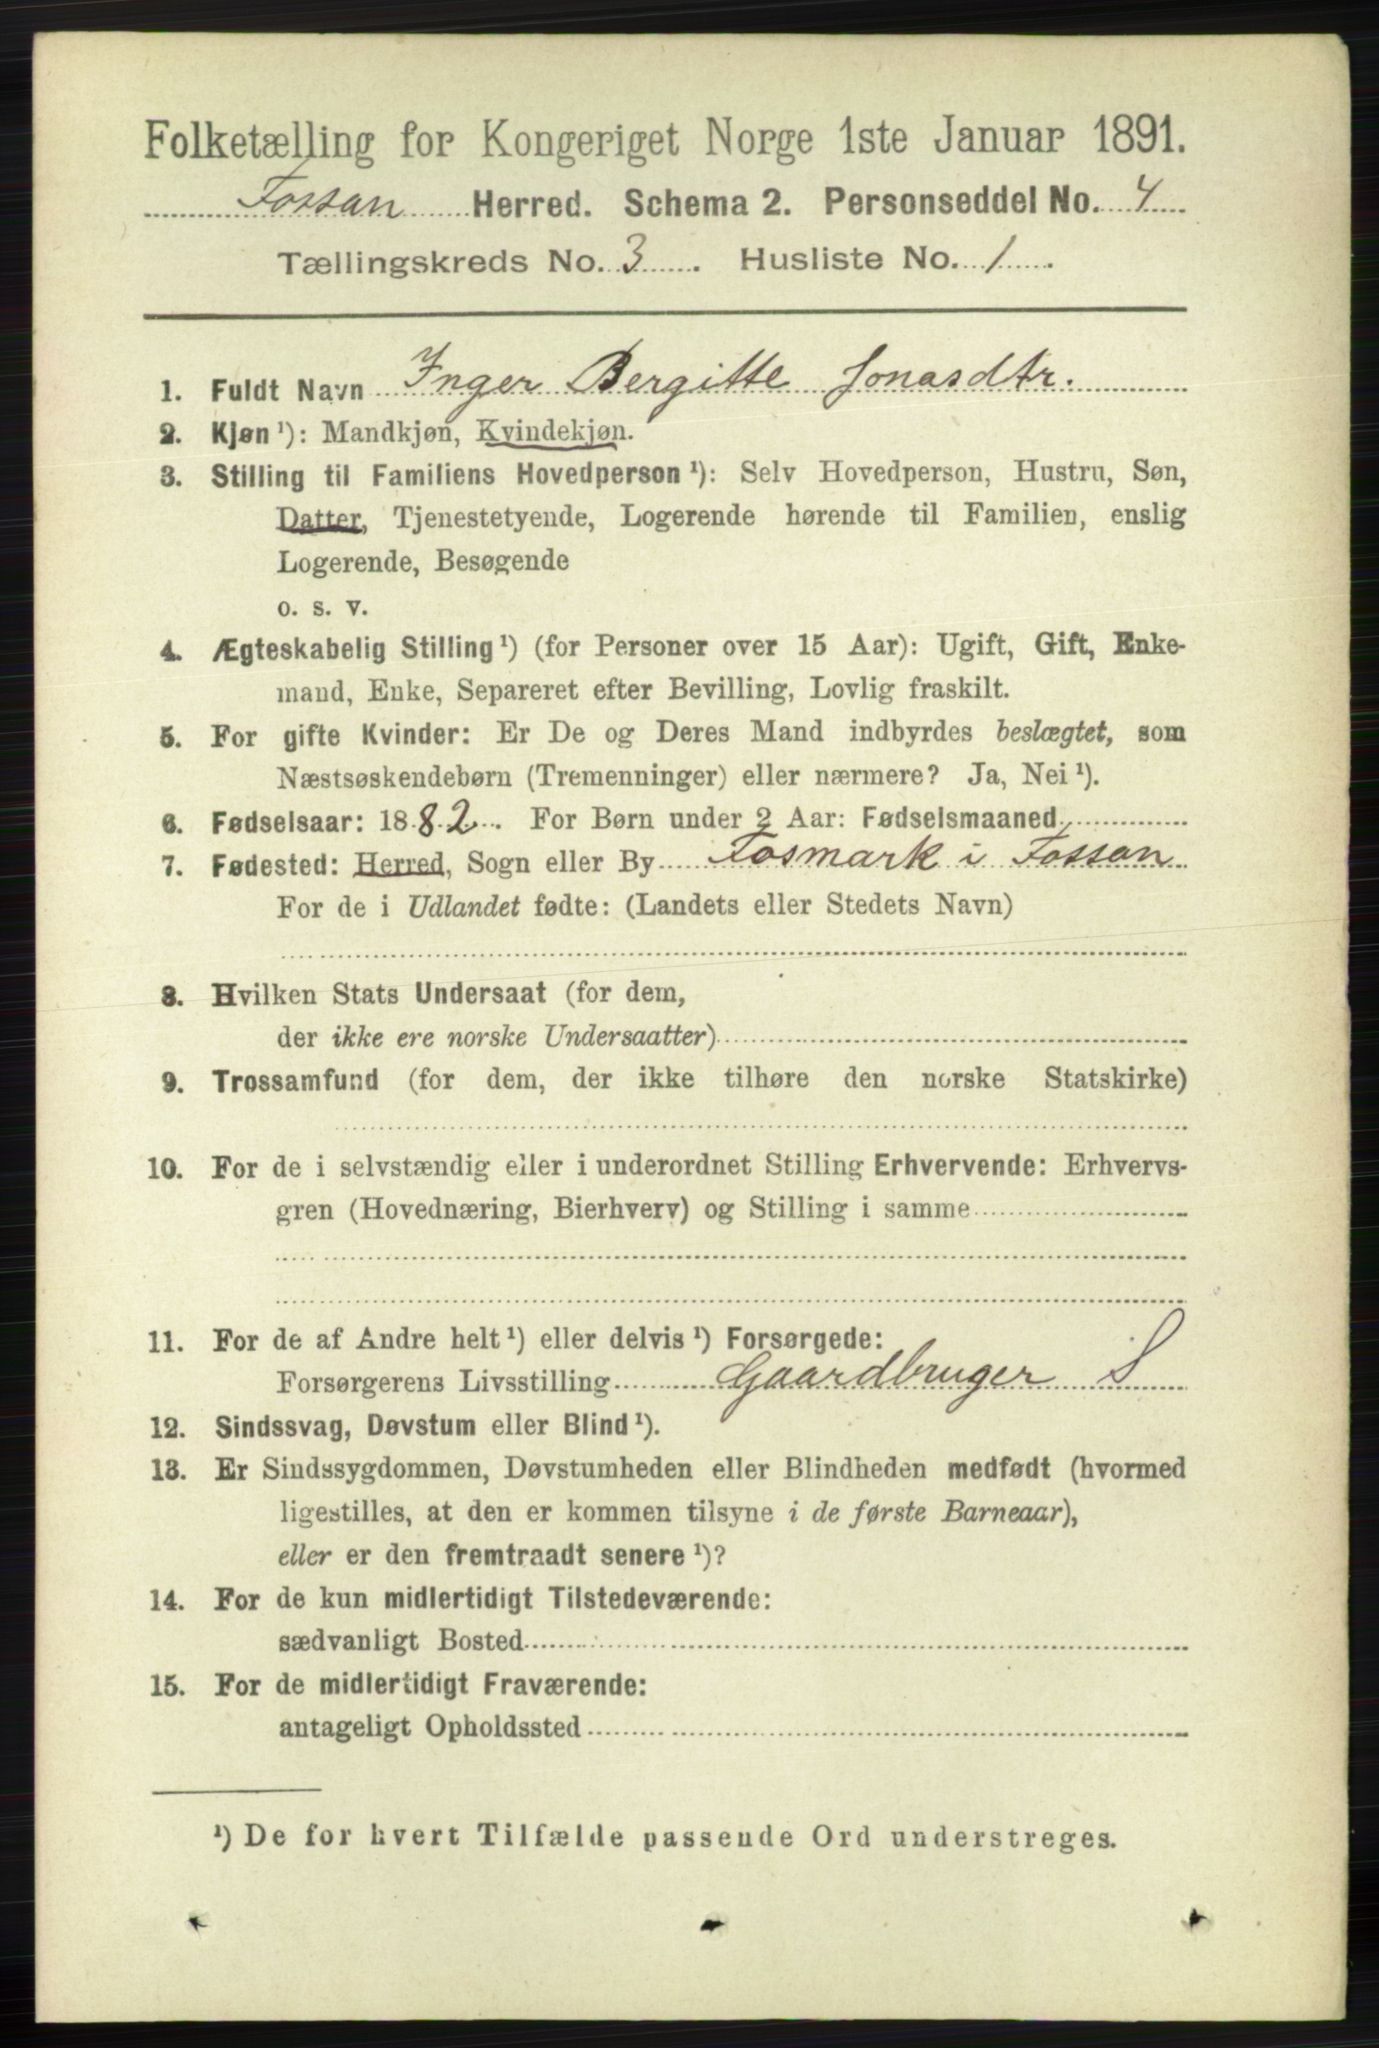 Folketælling for Kongeriget Norge 1ste Januar 1891.
Fossan Herred. Schema 2. Personseddel No. 4
Tællingskreds No. 3. Husliste No. 1.
1. Fuldt Navn Inger Bergitte Jonasdtr.
2. Kjøn ¹): Mandkjøn, Kvindekjøn.
3. Stilling til Familiens Hovedperson ¹): Selv Hovedperson, Hustru, Søn,
Datter, Tjenestetyende, Logerende hørende til Familien, enslig
Logerende, Besøgende
o. s. v.
4. Ægteskabelig Stilling ¹) (for Personer over 15 Aar): Ugift, Gift, Enke-
mand, Enke, Separeret efter Bevilling, Lovlig fraskilt.
5. For gifte Kvinder: Er De og Deres Mand indbyrdes beslægtet, som
Næstsøskendebørn (Tremenninger) eller nærmere? Ja, Nei ¹).
6. Fødselsaar: 1882. For Børn under 2 Aar: Fødselsmaaned
7. Fødested: Herred, Sogn eller By Fosmark i Fossan
For de i Udlandet fødte: (Landets eller Stedets Navn)
8. Hvilken Stats Undersaat (for dem,
der ikke ere norske Undersaatter)
9. Trossamfund (for dem, der ikke tilhøre den norske Statskirke)
10. For de i selvstændig eller i underordnet Stilling Erhvervende: Erhvervs-
gren (Hovednæring, Bierhverv) og Stilling i samme
11. For de af Andre helt ¹) eller delvis ¹) Forsørgede:
Forsørgerens Livsstilling Gaardbruger S
12. Sindssvag, Døvstum eller Blind ¹).
13. Er Sindssygdommen, Døvstumheden eller Blindheden medfødt (hvormed
ligestilles, at den er kommen tilsyne i de første Barneaar),
eller er den fremtraadt senere ¹)?
14. For de kun midlertidigt Tilstedeværende:
sædvanligt Bosted
15. For de midlertidigt Fraværende:
antageligt Opholdssted
¹) De for hvert Tilfælde passende Ord understreges.